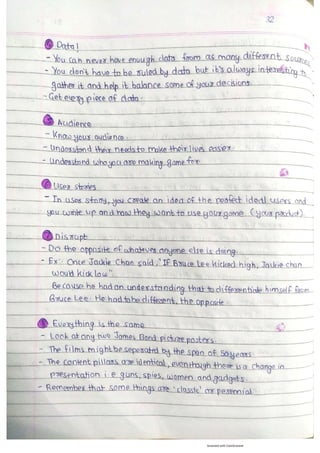 32
Data!
- You can never have enough data from as many different sources
- You don't have to be ruled by data but it's always interesting to
gather it and help it balance some of your decisions.
- Get every piece of data.
Audience
- Know your audience.
- Understand their needs to make their lives easier
- Understand who you are making game for
User stories
- In user story, you create an idea of the perfect ideal users and
you write up and how they want to use your game. (your product)
Disrupt
- Do the opposite of whatever anyone else is doing.
- Ex: Once Jackie Chan said, "If Bruce Lee kicked high, Jackie chan
would kick low"
Because he had an understanding that to differentiate himself from
Bruce Lee. He had to be different, the opposite
Everything is the same
- Look at any two James Bond picture posters.
- The films might be seperated by the span of 50 years.
- The content pillars are identical, even though there is a change in
presentation i.e guns, spies, women and gadgets.
- Remember that some things are 'classic' or perennial.
Scanned with CamScanner